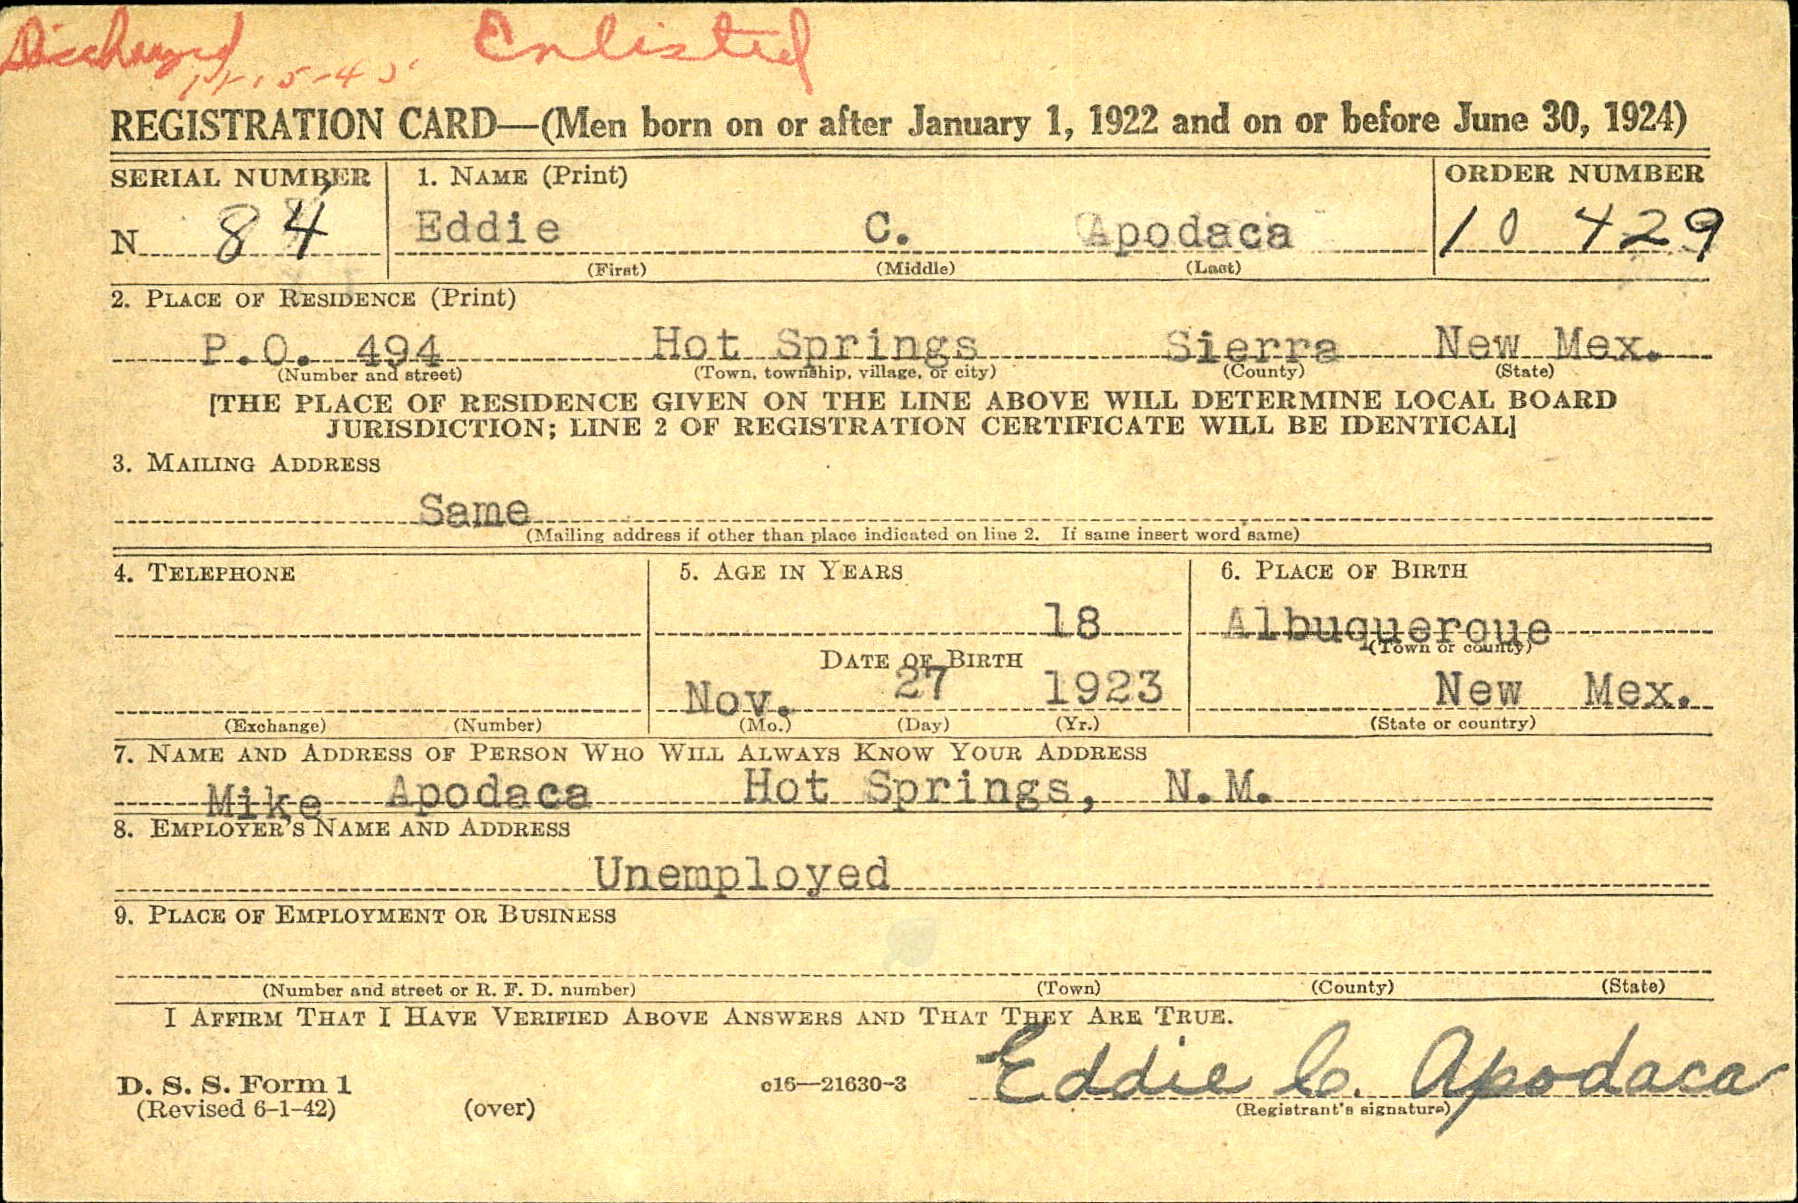 Discharged Enlisted
REGISTRATION CARD—(Men born on or after January 1, 1922 and on or before June 30, 1924)
SERIAL NUMBER 1. NAME (Print) ORDER NUMBER
N 84 Eddie C. Apodaca 10 429
(First) (Middle) (Last)
2. PLACE OF RESIDENCE (Print)
P.O. 494 Hot Springs Sierra New Mex.
(Number and street) (Town, township, village, or city) (County) (State)
[THE PLACE OF RESIDENCE GIVEN ON THE LINE ABOVE WILL DETERMINE LOCAL BOARD
JURISDICTION; LINE 2 OF REGISTRATION CERTIFICATE WILL BE IDENTICAL]
3. MAILING ADDRESS
Same
(Mailing address if other than place indicated on line 2. If same insert word same)
4. TELEPHONE 5. AGE IN YEARS 6. PLACE OF BIRTH
18 Albuquerque
(Town or county)
DATE OF BIRTH
Nov. 27 1923 New Mex.
(Exchange) (Number) (Mo.) (Day) (Yr.) (State or country)
7. NAME AND ADDRESS OF PERSON WHO WILL ALWAYS KNOW YOUR ADDRESS
Mike Apodaca Hot Springs, N.M.
8. EMPLOYER'S NAME AND ADDRESS
Unemployed
9. PLACE OF EMPLOYMENT OR BUSINESS
(Number and street or R. F. D. number) (Town) (County) (State)
I AFFIRM THAT I HAVE VERIFIED ABOVE ANSWERS AND THAT THEY ARE TRUE.
Eddie C. Apodaca
D. S. S. Form 1 c16—21630-3
(Revised 6-1-42) (over) (Registrant's signature)